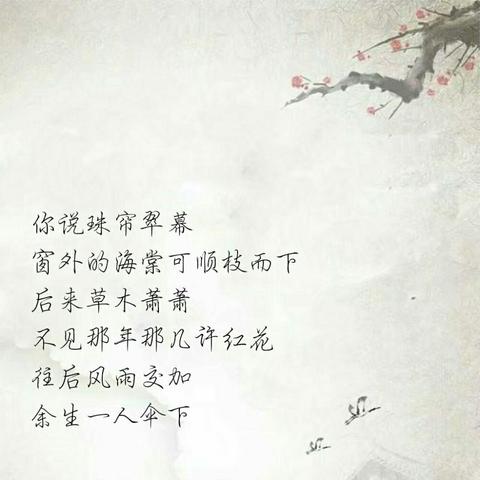 你说珠帘翠幕
窗外的海棠可顺枝而下
后来草木萧萧
不见那年那几许红花
往后风雨交加
余生一人伞下